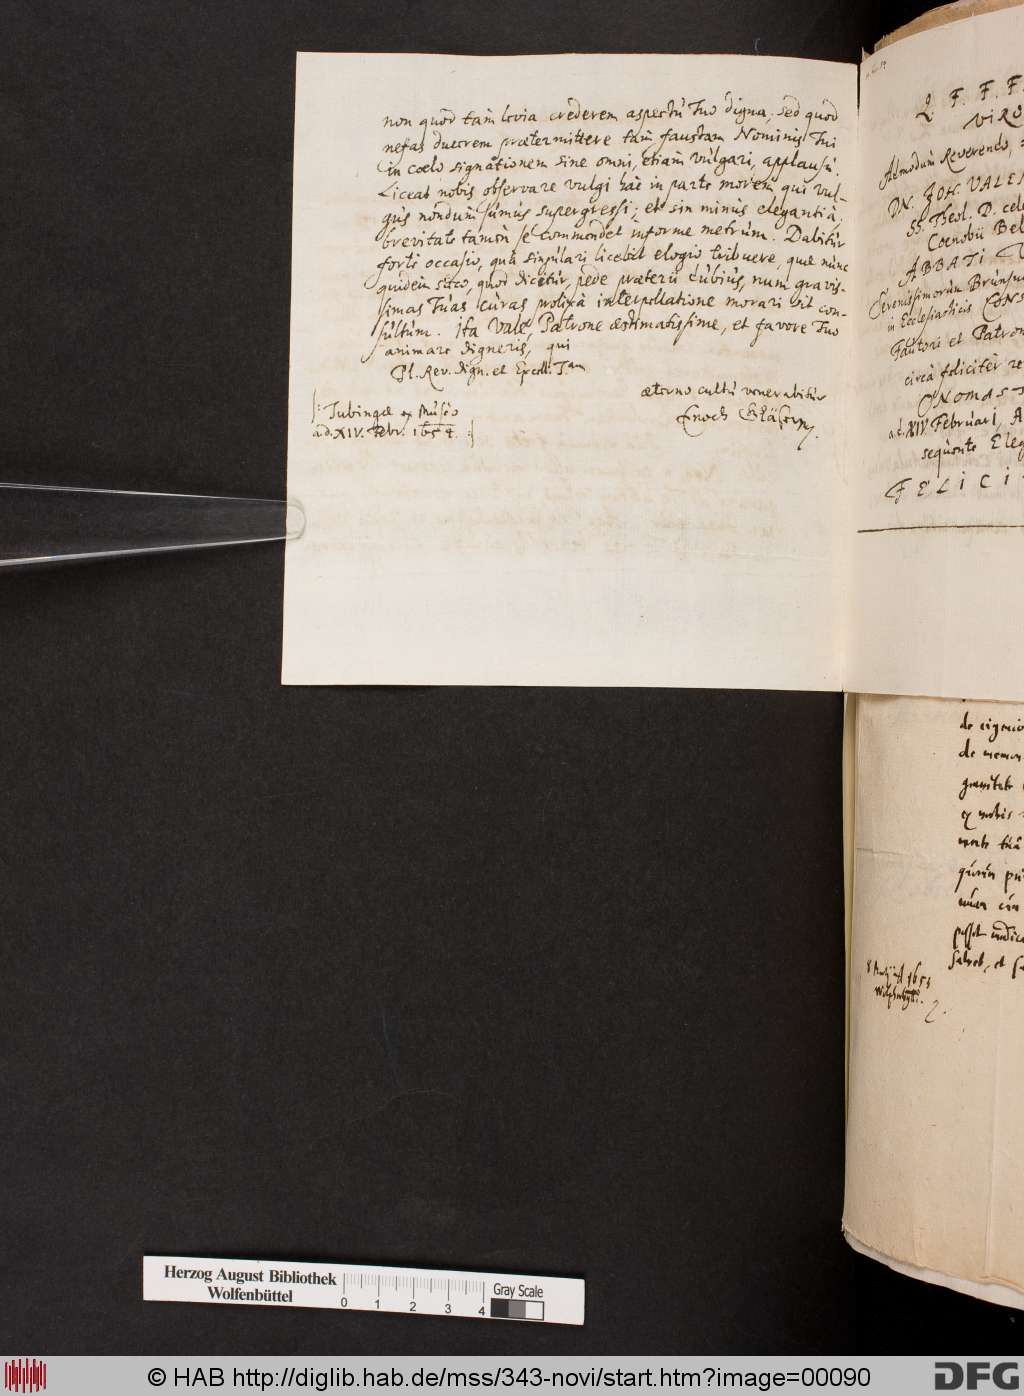 non quòd tam levia crederem aspectu Tuo digna, sed quod
nefas ducerem prætermittere tam faustam Nominis Tui
in coelo signationem sine omni, etiam vulgari, applausu.
Liceat nobis observare vulgi hac in parte morem qui vul-
gus nondum sumus supergressi; et sin minus elegantiâ,
brevitate tamen se commendet informe metrum. Dabitur
forte occasio, quâ singulari licebit elogio tribuere, quæ nunc
quidem sicco, quod dicitur, pede præterii dubius, num gravis-
simas Tuas curas prolixâ interpellatione morari sit con-
sultum. Ita Vale, Patrone æstimatissime, et favore Tuo
animare digneris, qui
Pl. Rev. Dign. et Excell. T.am
æterno cultu venerabitur
Enoch Gläser
Tubingæ ex Musèo
ad. XIV. Febr. 1654.
Q. F. F. F.
VIRO
Admodum Reverendo,
DN. JOH. VALE
SS. Theol. D. cele
Coenobii Bel
ABBATI
Serenissimorum Brunsu
in Ecclesiasticis CONS
Fautori et Patron
circà feliciter re
ONOMAST
a.d. XIV. Februari, A
sequente Eleg
FELICI
de
de memor
gravitate
ex nobis
morte tuâ
Wolfenbytti.
Herzog August Bibliothek
Wolfenbüttel
0 1 2 3 4
Gray Scale
© HAB http://diglib.hab.de/mss/343-novi/start.htm?image=00090
DFG